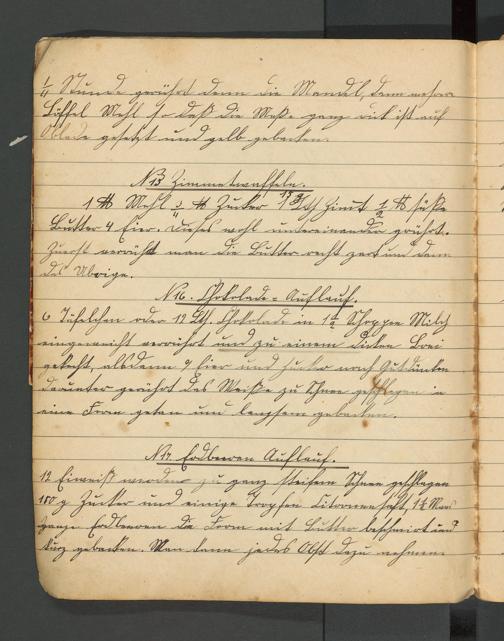 1/4 Stunde gerührt dann die Mandel, dann mehrere
Löffel Mehl so daß die Maße ganz dick ist auf
Oblade gesetzt und gelb gebacken.
N 15 Zimmetwaffeln.
1 ℔ Mehl 3/4 ℔ Zucker Lth Zimt 1/2 ℔ süße
Butter 4 Eier. Dieses wohl untereinander gerührt.
Zuerst verrührt man die Butter recht zart und dann
das Übrige.
N 16. Chokolade-Auflauf.
6 Täfelchen oder 12 Lth. Chokolade in 1 1/2 Schoppen Milch
eingeweicht verrührt und zu einem dicken Brei
gekocht, alsdann 7 Eier und Zucker nach Gutdünken
darunter gerührt das Weiße zu Schnee geschlagen in
eine Form getan und langsam gebacken.
N 17. Erdbeeren Auflauf.
12 Eiweiß werden zu ganz steifem Schnee geschlagen
150 g Zucker und einige Tropfen Citronensaft,
ganze Erdbeeren die Form mit Butter beschmirt und
kurz gebacken. Man kann jedes Obst dazu nehmen.